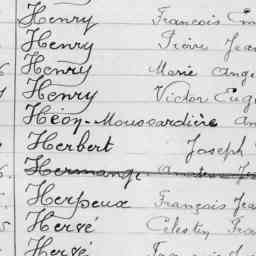 Henry François Em
Henry Pierre Jea
Henry Marie Ange
Henry Victor Eug
Héoy-Mouscardière An
Herbert Joseph
Hermange
Herpeux François Jea
Hervé Célestin Fra
Hervé François J